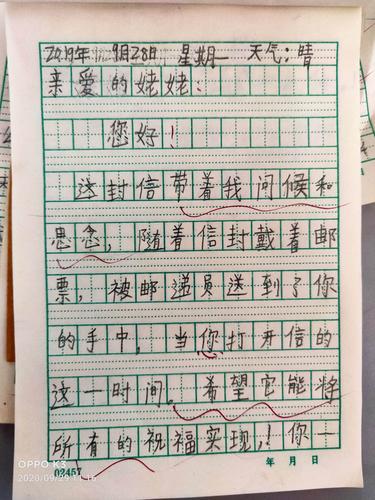 2019年 9月28日 星期一 天气：晴
亲爱的姥姥：
您好！
这封信带着我问候和
思念，随着信封戴着邮
票，被邮递员送到了你
的手中，当你打开信的
这一时间。希望它能将
所有的祝福实现,！你一
02457 年 月 日
OPPO K3
2020/09/29 11:16